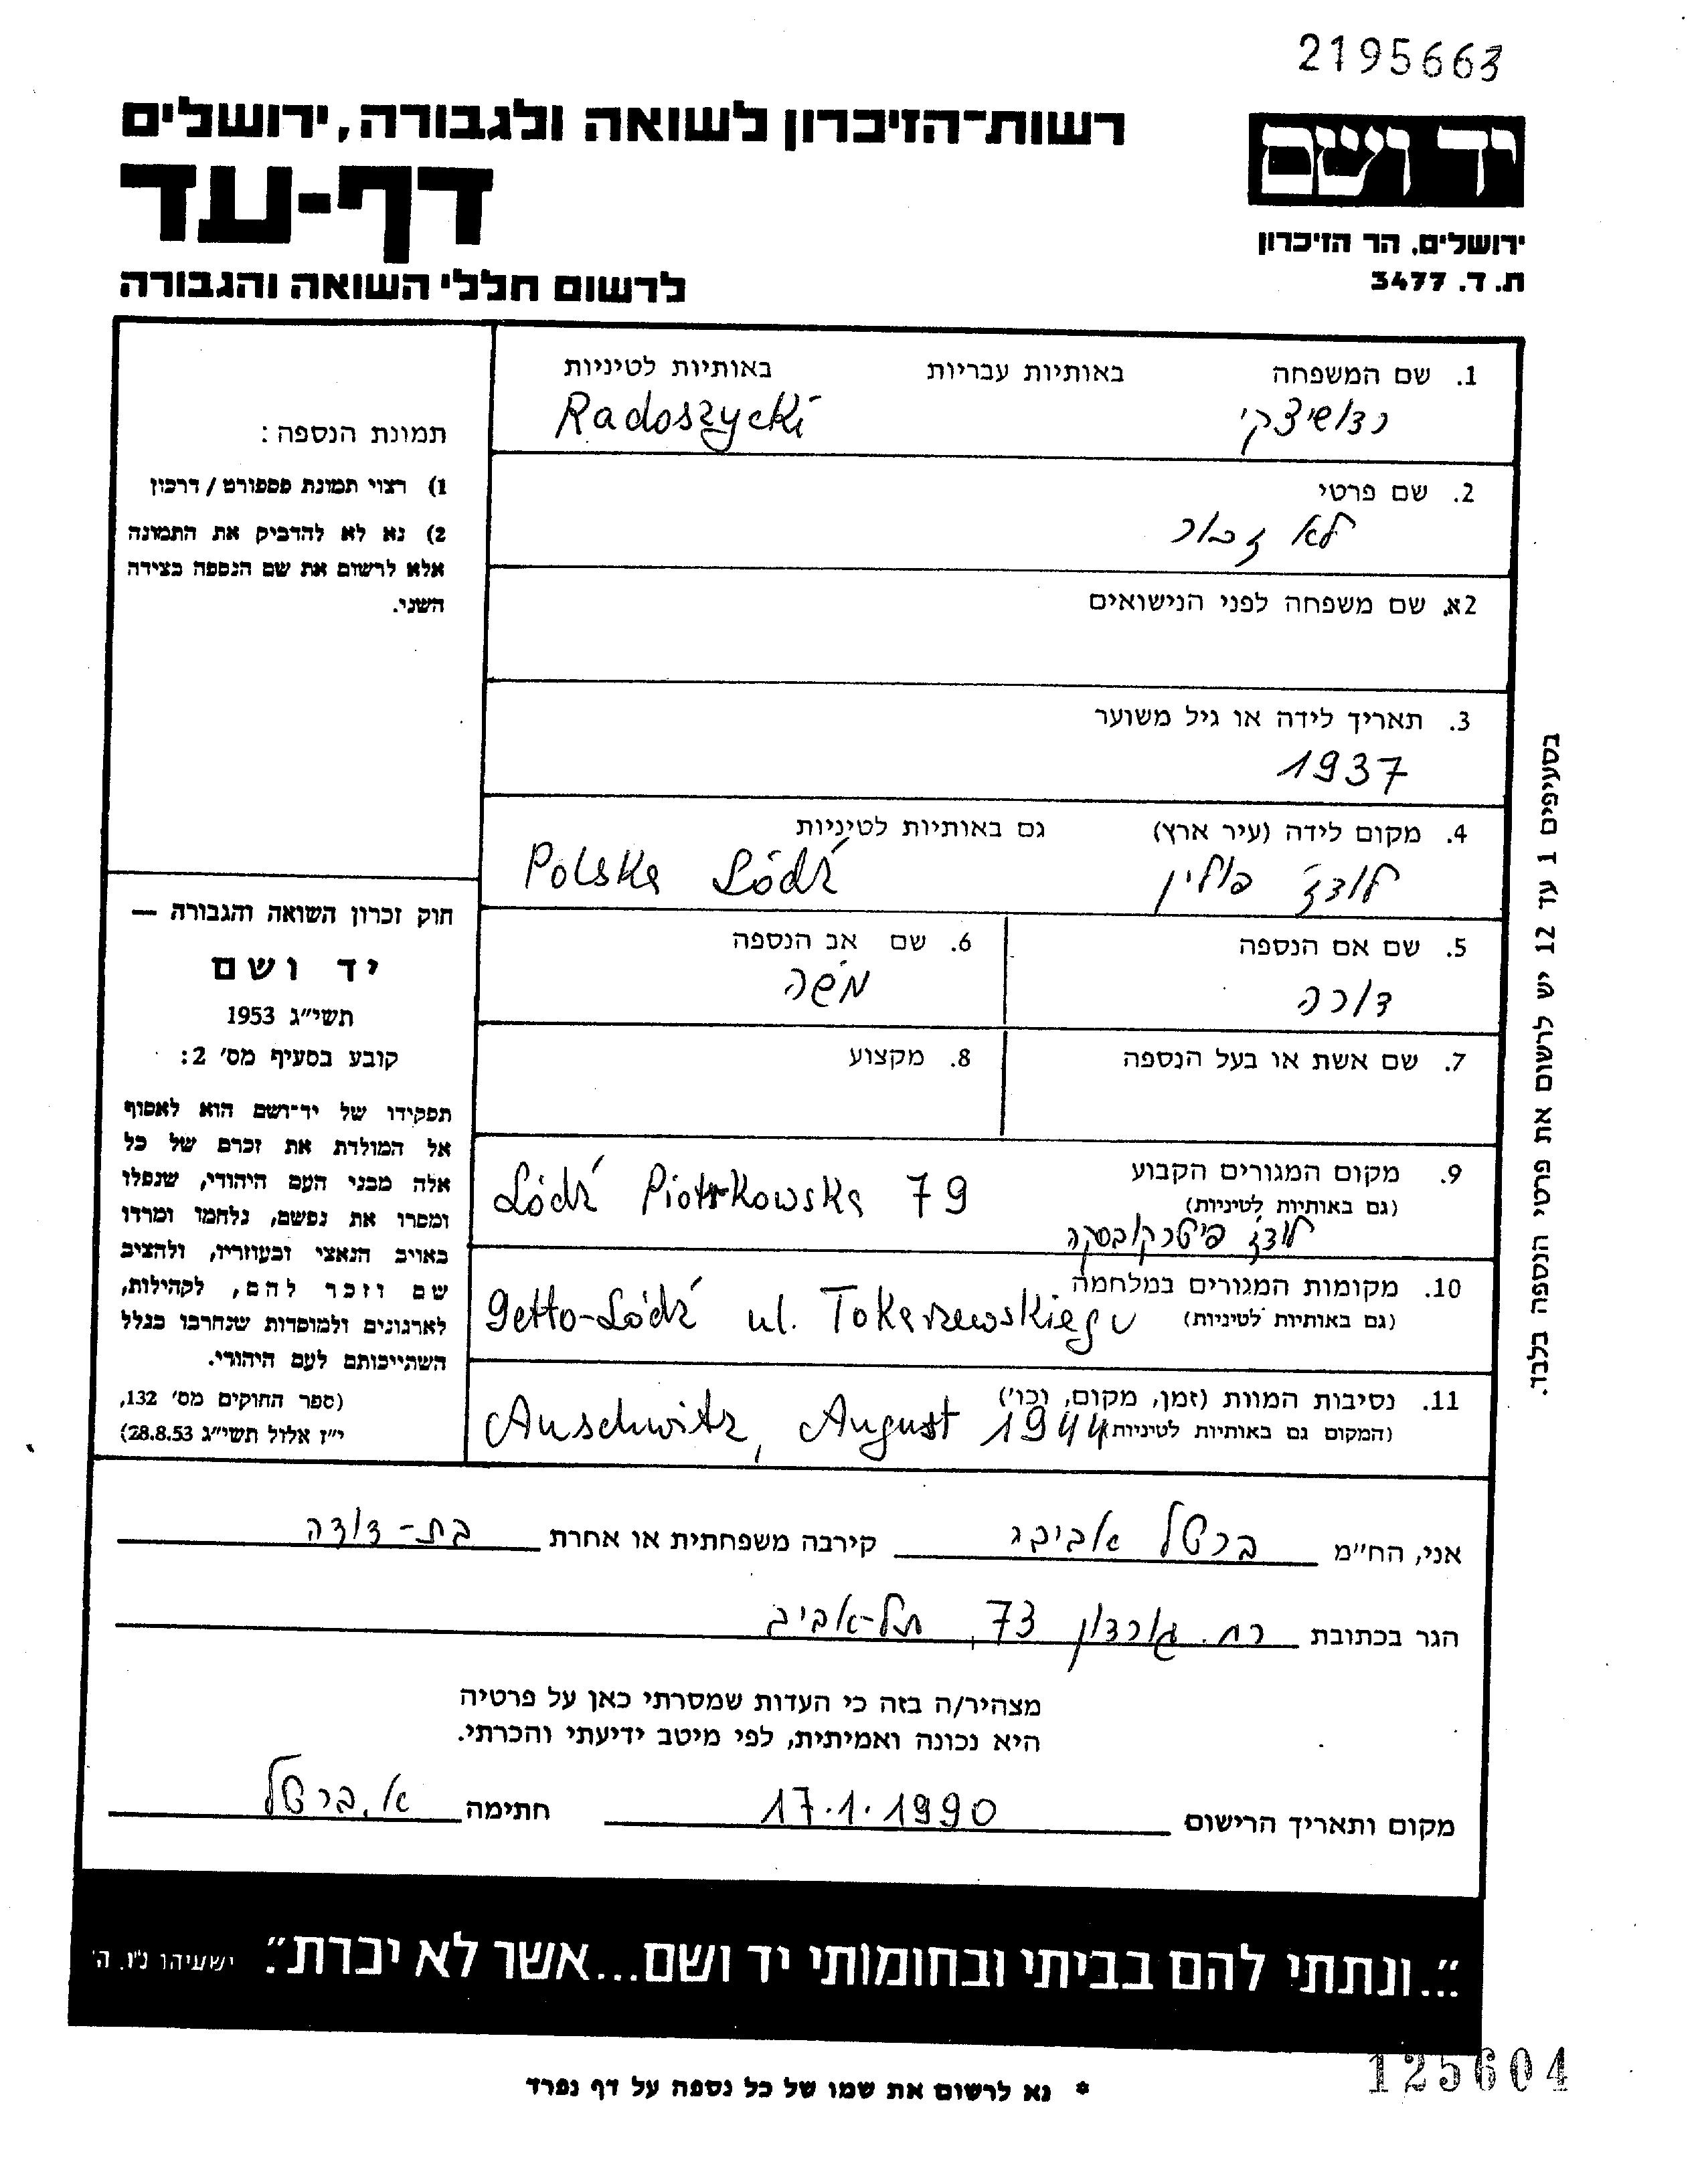 2195663
רשות־הזיכרון לשואה ולגבורה, ירושלים
דף-עד
לרשום חללי השואה והגבורה
יד ושם
ירושלים, הר הזיכרון
ת. ד. 3477
1. שם המשפחה באותיות עבריות באותיות לטיניות
רדושיצקי Radoszycki
2. שם פרטי
לא זכור
2א. שם משפחה לפני הנישואים
3. תאריך לידה או גיל משוער
1937
4. מקום לידה (עיר ארץ) גם באותיות לטיניות
לודז' פולין Polska Łódź
5. שם אם הנספה
דורה
6. שם אב הנספה
משה
7. שם אשת או בעל הנספה
8. מקצוע
9. מקום המגורים הקבוע
(גם באותיות לטיניות)
Łódź Piotrkowska 79
לודז' פיטרקובסקה
10. מקומות המגורים במלחמה
(גם באותיות לטיניות)
Getto-Łódź ul. Tokarzewskiego
11. נסיבות המוות (זמן, מקום, וכו')
(המקום גם באותיות לטיניות)
Auschwitz, August 1944
תמונת הנספה:
1) רצוי תמונת פספורט / דרכון
2) נא לא להדביק את התמונה
אלא לרשום את שם הנספה בצידה
השני.
חוק זכרון השואה והגבורה —
יד ושם
תשי״ג 1953
קובע בסעיף מס' 2:
תפקידו של יד־ושם הוא לאסוף
אל המולדת את זכרם של כל
אלה מבני העם היהודי, שנפלו
ומסרו את נפשם, נלחמו ומרדו
באויב הנאצי ובעוזריו, ולהציב
שם וזכר להם, לקהילות,
לארגונים ולמוסדות שנחרבו בגלל
השתייכותם לעם היהודי.
(ספר החוקים מס' 132,
י״ז אלול תשי״ג 28.8.53)
בסעיפים 1 עד 12 יש לרשום את פרטי הנספה בלבד.
אני, הח״מ ברטל אביבה קירבה משפחתית או אחרת בת-דודה
הגר בכתובת רח. גורדון 73, תל-אביב
מצהיר/ה בזה כי העדות שמסרתי כאן על פרטיה
היא נכונה ואמיתית, לפי מיטב ידיעתי והכרתי.
מקום ותאריך הרישום 17.1.1990 חתימה א. ברטל
״...ונתתי להם בביתי ובחומותי יד ושם...אשר לא יכרת״. ישעיהו נ״ו. ה'
125604
* נא לרשום את שמו של כל נספה על דף נפרד